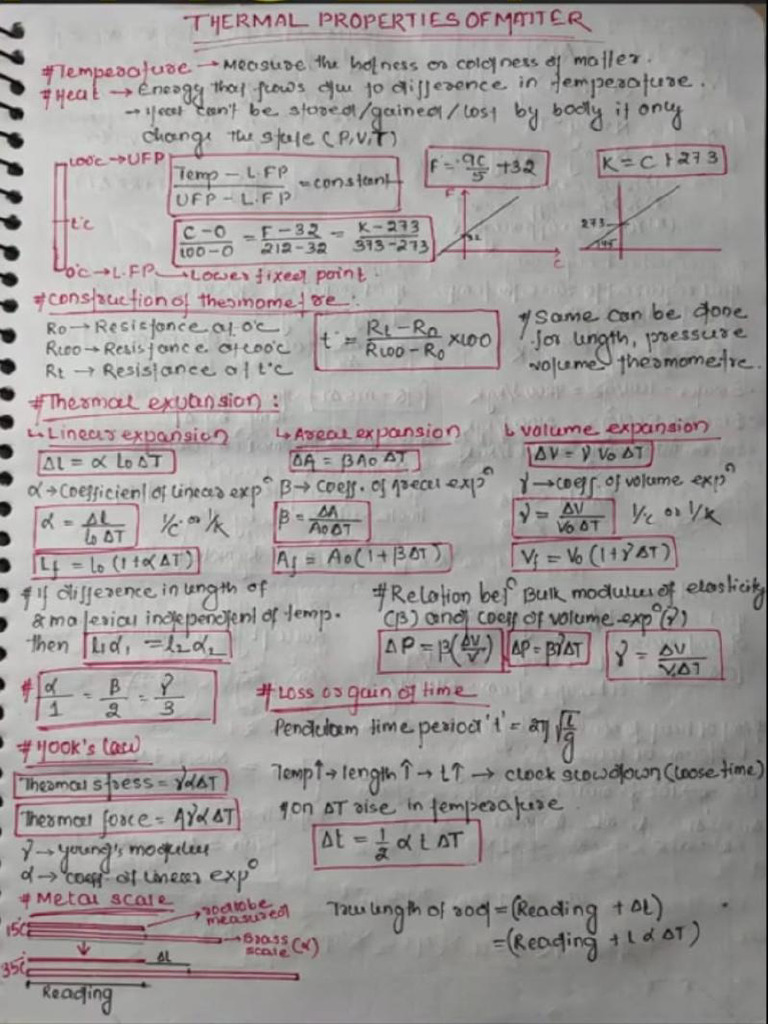 THERMAL PROPERTIES OF MATTER
#Temperature → Measure the hotness or coldness of matter.
#Heat → Energy that flows due to difference in temperature.
→ Heat can't be stored/gained/lost by body it only
change the state (P,V,T)
100°C → UFP
t°C
0°C → L.FP → Lower fixed point.
Temp - L.FP / UFP - L.FP = constant
C-0/100-0 = F-32/212-32 = K-273/373-273
F = 9C/5 + 32
F
32
C
K = C + 273
273
45°
#Construction of thermometre:
R0 → Resistance at 0°C
R100 → Resistance at 100°C
Rt → Resistance at t°C
t = Rt - R0 / R100 - R0 × 100
* Same can be done
for length, pressure
volumes thermometre.
#Thermal expansion:
↳ Linear expansion
Δl = α l0 ΔT
α → Coefficient of linear expⁿ
α = Δl / l0 ΔT 1/°C or 1/K
Lf = l0 (1+αΔT)
↳ Areal expansion
ΔA = βA0 ΔT
β → Coeff. of areal expⁿ
β = ΔA / A0ΔT
Af = A0(1+βΔT)
↳ volume expansion
ΔV = γ V0 ΔT
γ → coeff. of volume expⁿ
γ = ΔV / V0 ΔT 1/°C or 1/K
Vf = V0 (1+γΔT)
# If difference in length of
2 material independent of temp.
then l1α1 = l2α2
# Relation betⁿ Bulk modulus of elasticity
(β) and coeff of volume expⁿ(γ)
ΔP = β(ΔV/V) ΔP = βγΔT γ = ΔV / V.ΔT
# α/1 = β/2 = γ/3
# Loss or gain of time
Pendulam time period 't' = 2π √l/g
Temp↑ → length↑ → t↑ → clock slow down (loose time)
on ΔT rise in temperature
Δt = 1/2 α t ΔT
# Hook's law
Thermal stress = YαΔT
Thermal force = AYαΔT
Y → young's modulus
α → coeff. of linear expⁿ
# Metal scale
15°C
rod to be
measured
Brass
scale (α)
35°C
Δl
Reading
True length of rod = (Reading + Δl)
= (Reading + l α ΔT)